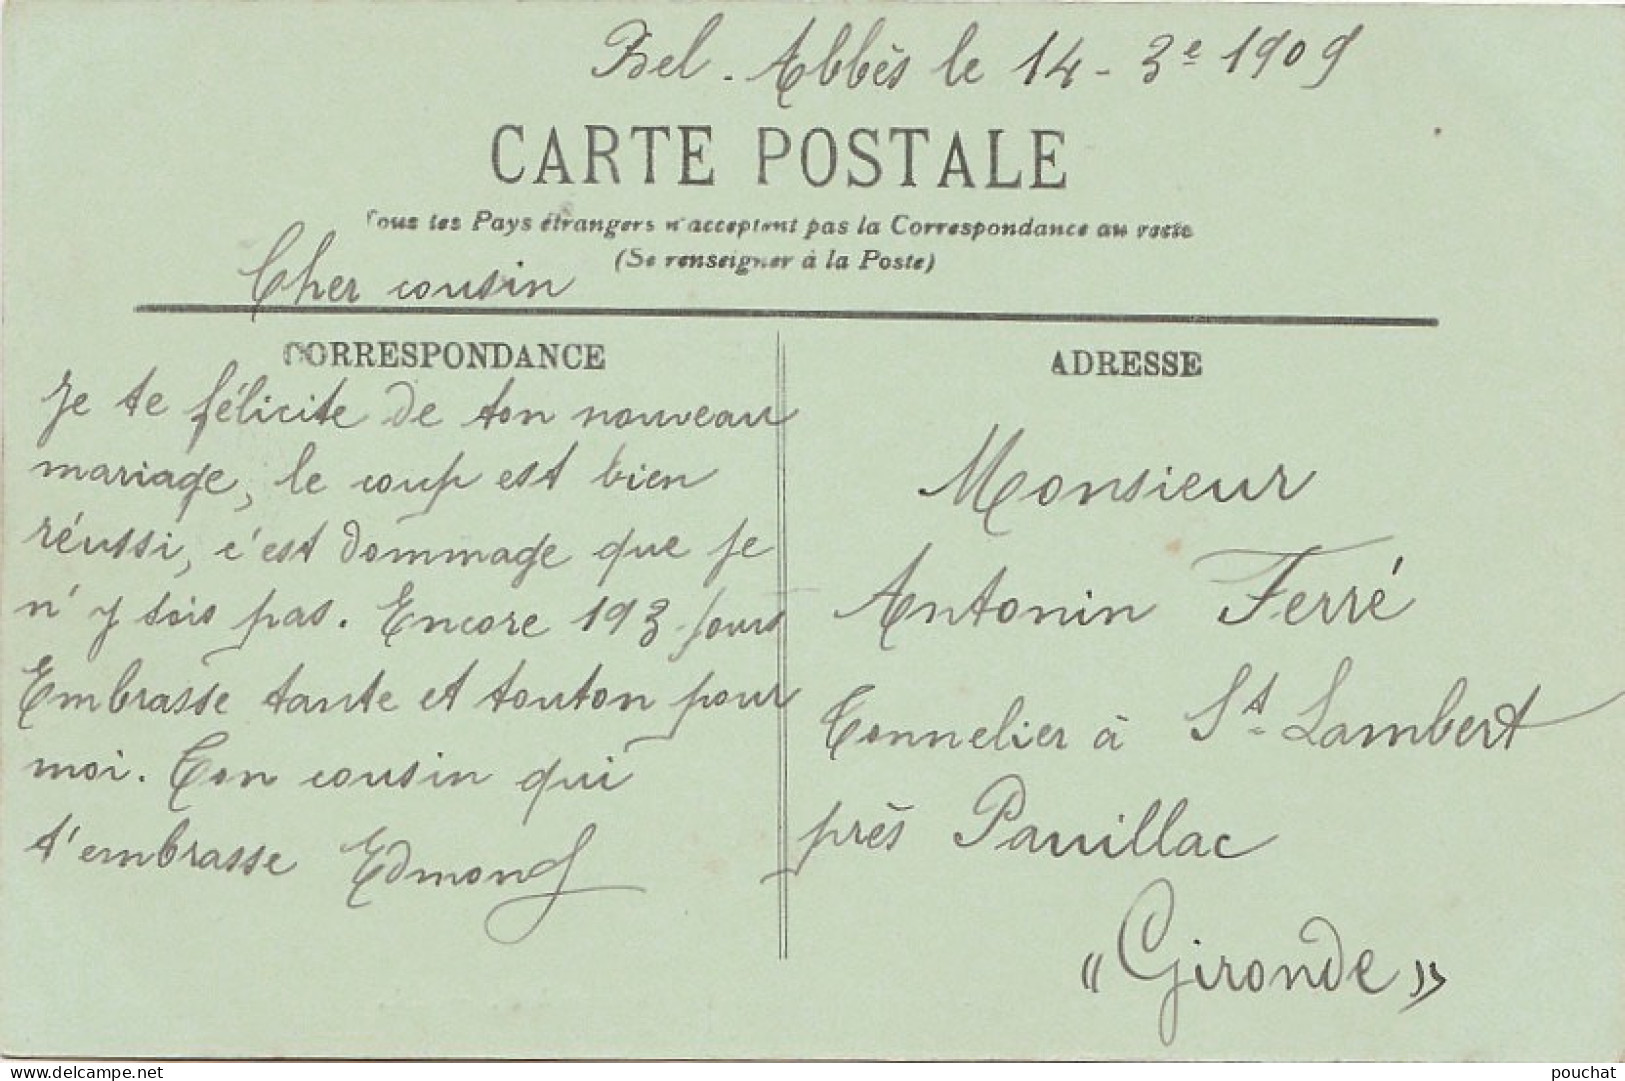 Bel-Abbès le 14-3e 1909
CARTE POSTALE
Tous les Pays étrangers n'acceptent pas la Correspondance au recto
(Se renseigner à la Poste)
Cher cousin
CORRESPONDANCE
Je te félicite de ton nouveau
mariage, le coup est bien
réussi, c'est dommage que je
n'y sois pas. Encore 193 jours
Embrasse tante et tonton pour
moi. Ton cousin qui
t'embrasse Edmond
ADRESSE
Monsieur
Antonin Ferré
Tonnelier à St Lambert
près Pauillac
"Gironde"
pouchat